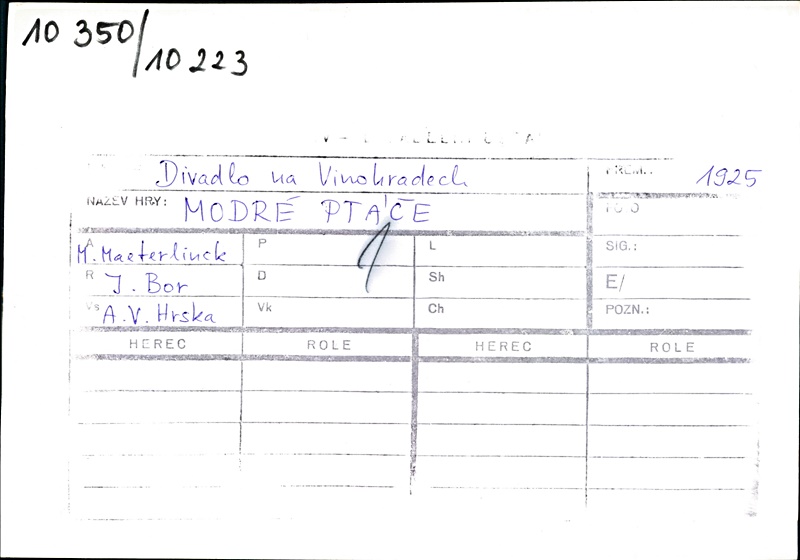 10 350/
10 223
Divadlo na Vinohradech
PREM.: 1925
NAZEV HRY: MODRÉ PTÁČE
FOTO
A M. Maeterlinck P L SIG.:
R J. Bor D Sh E/
Vs A.V. Hrska Vk Ch POZN.:
HEREC ROLE HEREC ROLE